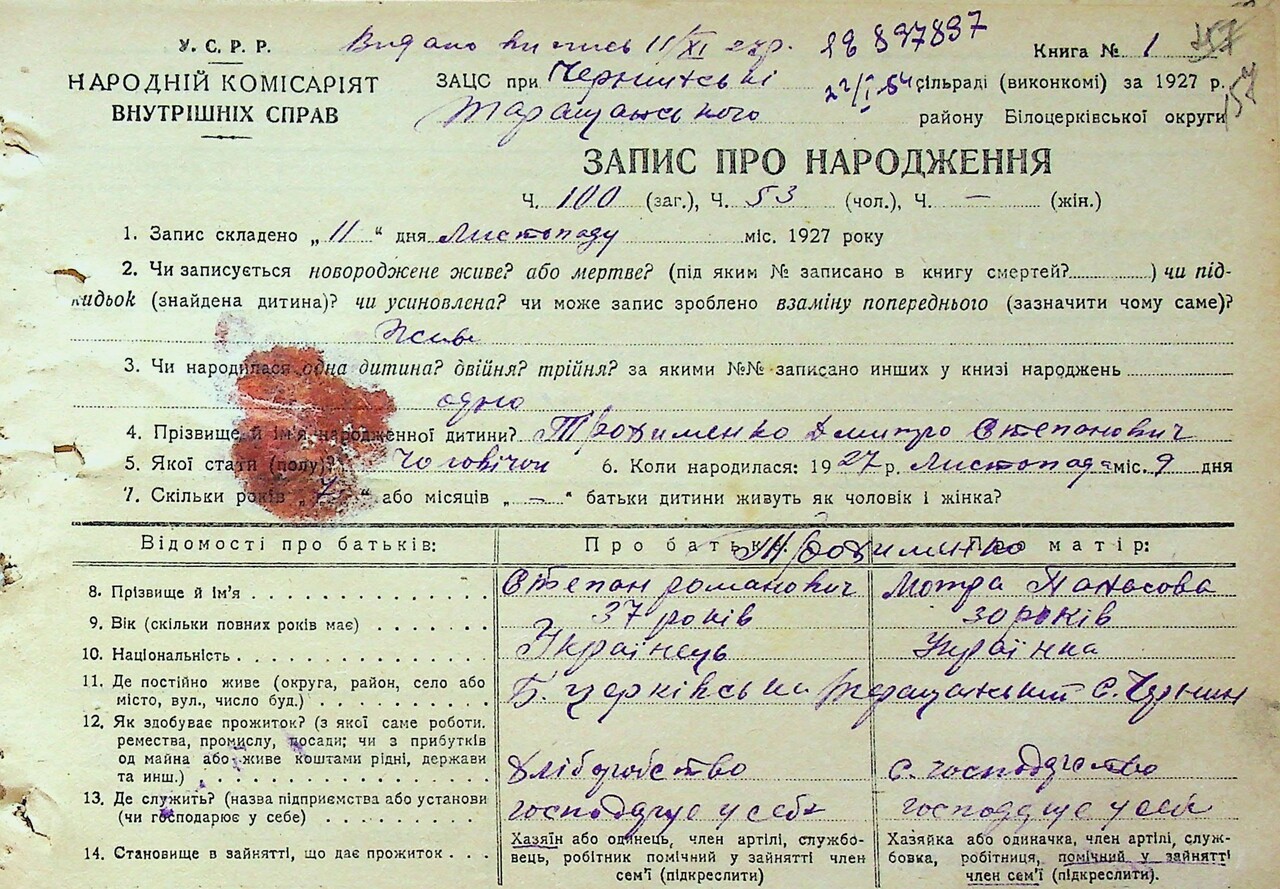 У. С. Р. Р.
НАРОДНІЙ КОМІСАРІЯТ
ВНУТРІШНІХ СПРАВ
Видано випись 11/XI 27р. 18 897837
Книга № 1 157
ЗАЦС при Чернинські 22/I 54 сільраді (виконкомі) за 1927 р.
Таращанського району Білоцерківської округи
157
ЗАПИС ПРО НАРОДЖЕННЯ
Ч. 100 (заг.), Ч. 53 (чол.), Ч. — (жін.)
1. Запис складено „ 11 “ дня Листопаду міс. 1927 року
2. Чи записується новороджене живе? або мертве? (під яким № записано в книгу смертей?............) чи під-
кидьок (знайдена дитина)? чи усиновлена? чи може запис зроблено взаміну попереднього (зазначити чому саме)?
Живе
3. Чи народилася одна дитина? двійня? трійня? за якими №№ записано инших у книзі народжень
одно
4. Прізвище й ім'я народженної дитини? Трохименко Дмитро Степанович
5. Якої стати (полу)? Чоловічої 6. Коли народилася: 1927 р. Листопада міс. 9 дня
7. Скільки років „ 7 “ або місяців „ — “ батьки дитини живуть як чоловік і жінка?
Відомості про батьків: Про батька: Про матір:
Трохименко
8. Прізвище й ім'я Степан романович Мотра Панасова
9. Вік (скільки повних років має) 37 років 30 років
10. Національність Українець Українка
11. Де постійно живе (округа, район, село або
місто, вул., число буд.) Б. Церківська Таращанський С. Чернин
12. Як здобуває прожиток? (з якої саме роботи.
ремества, промислу, посади; чи з прибутків
од майна або живе коштами рідні, держави
та инш.) Хліборобство С. господарство
13. Де служить? (назва підприємства або установи
(чи господарює у себе) господарює у себе господарює у себе
14. Становище в зайнятті, що дає прожиток
Хазяїн або одинець, член артілі, службо-
вець, робітник помічний у зайнятті член
сем'ї (підкреслити)
Хазяйка або одиначка, член артілі, служ-
бовка, робітниця, помічний у зайнятті
член сем'ї (підкреслити).